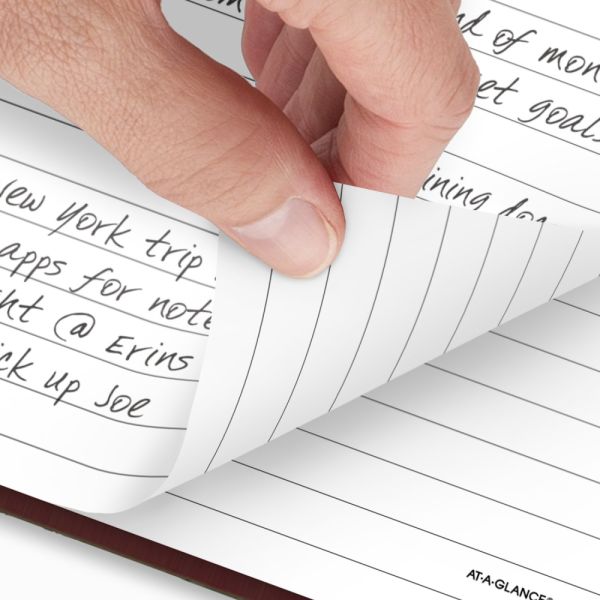 nd of mon
et goals
ining for
ew York trip
apps for note
ht @ Erins
ck up Joe
AT·A·GLANCE®